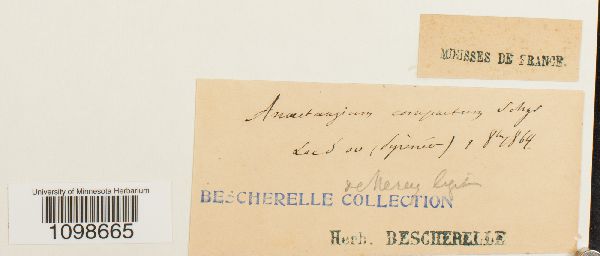 MOUSSES DE FRANCE.
Anoectangium compactum Schgr
Lac d'oo (Pyrénées) 1 8bre 1864
de Mercey legit
BESCHERELLE COLLECTION
Herb. BESCHERELLE
University of Minnesota Herbarium
1098665